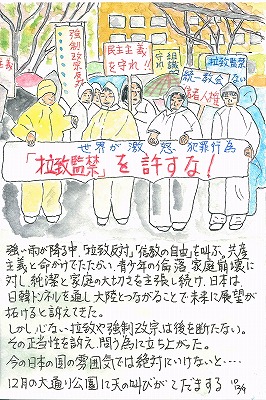 強制改宗反対
民主主義
を守れ!!
組織
守れ
拉致監禁
統一教会
ない
信者人権
世界が激怒犯罪行為
「拉致監禁」を許すな!
強い雨が降る中、「拉致反対」「信教の自由」を叫ぶ。共産
主義と命がけでたたかい、青少年の倫落、家庭崩壊に
対し純潔と家庭の大切さを主張し続け、日本は、
日韓トンネルを通し大陸とつながることで未来に展望が
拓けると訴えてきた。
しかし心ない拉致や強制改宗は後を断たない。
その正当性を訴え、問う為に立ち上がった。
今の日本の国の雰囲気では絶対にいけないと・・・・
12月の大通り公園に天の叫びがこだまする